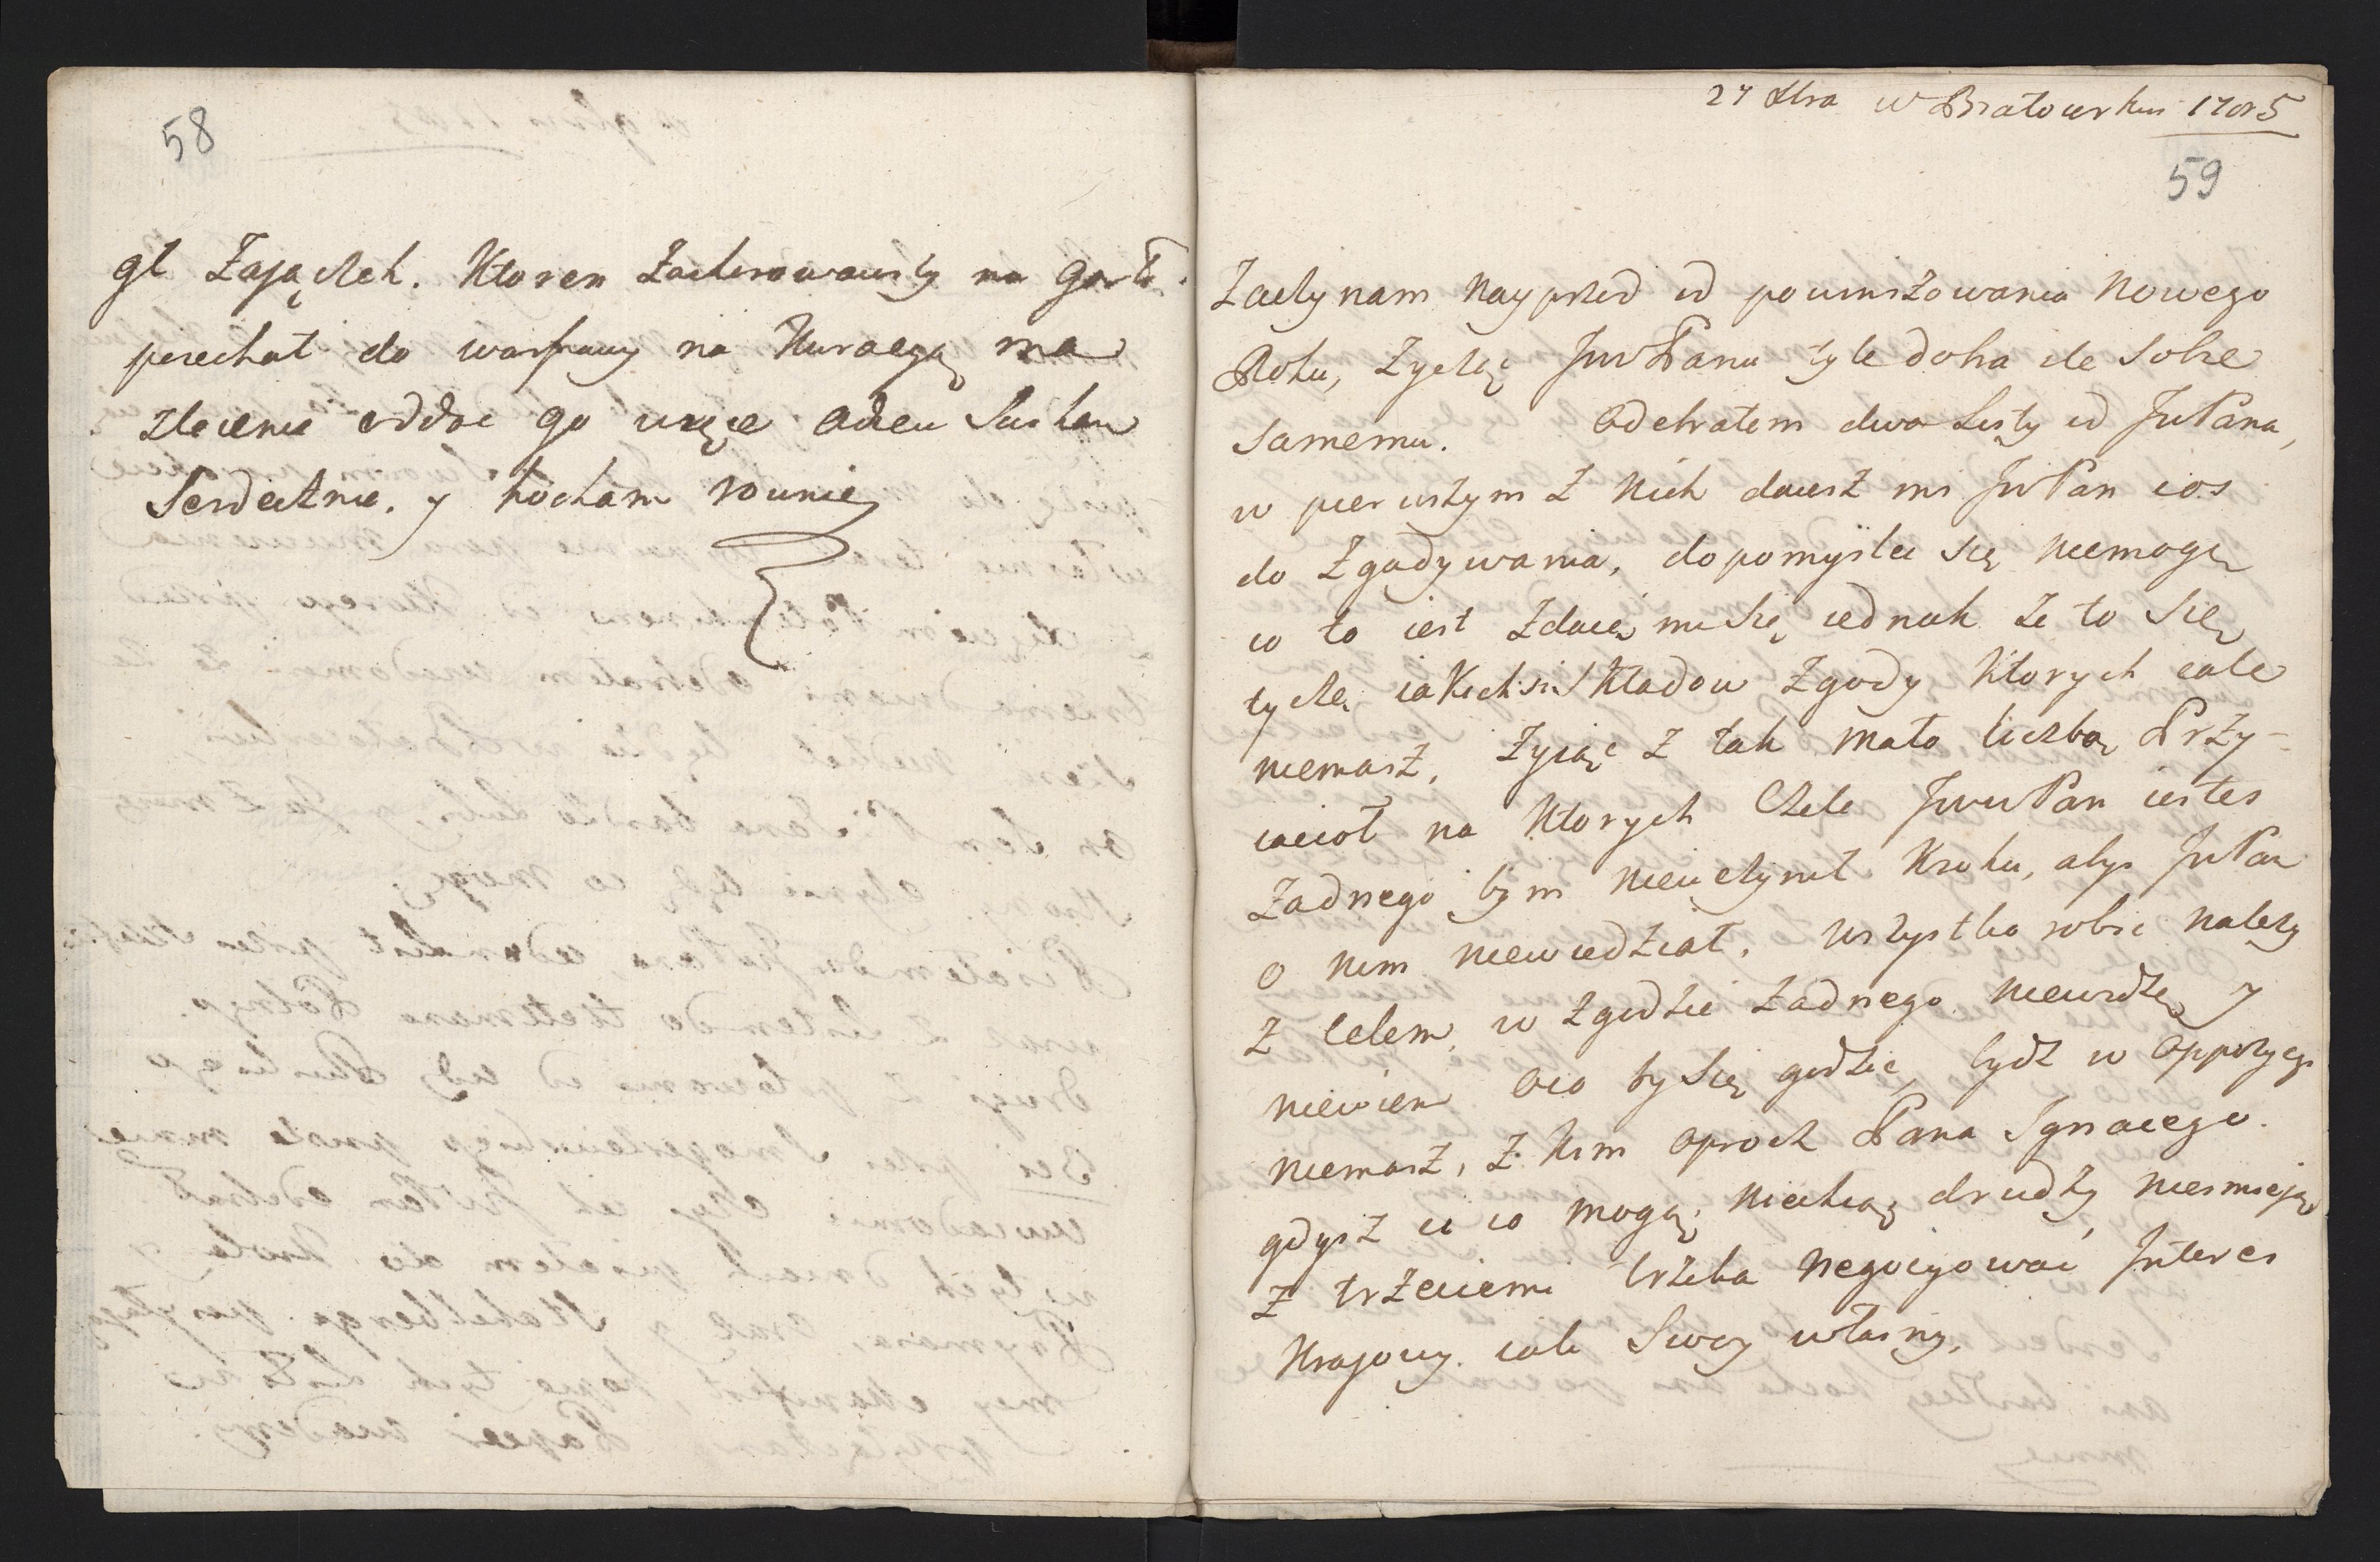 58
gł Zajączek. Ktoren zachorowawszy na gardło
pojechał do warszawy na Kuracyą ma
zlecenie oddac go wręce adieu Sciskam
Serdecznie. y kocham rownie
27 Xbra w Białowsku 1785
59
Zaczynam Nayprzed od powinszowania Nowego
Roku, Zyczę JwPanu tyle dobra ile Sobie
Samemu. Odebrałem dwa Listy od JwPana,
w pierwszym z Nich dajesz mi JwPan cos
do Zgadywania, dopomyslec się niemogę
co to iest zdaie mi się iednak że to się
tycze iakichsis Układow Zgody ktorych cale
niemasz, zyiąc z tak małą liczbą Przy-
iacioł na ktorych Czele JwwPan iestes
Zadnego bym nieuczynił Kroku, abys JwPan
o nim niewiedział, wszystko robic nalezy
z Celem, w zgodzie zadnego niewidzę y
niewiem oco by się godzic, bydz w Oppozycyi
niemasz, z kim oprocz Pana Ignacego.
gdysz ci co mogą, niechcą, drudzy niesmieją,
z trzeciemi trzeba Negocyowac Interes
Krajowy iak Swoy własny,